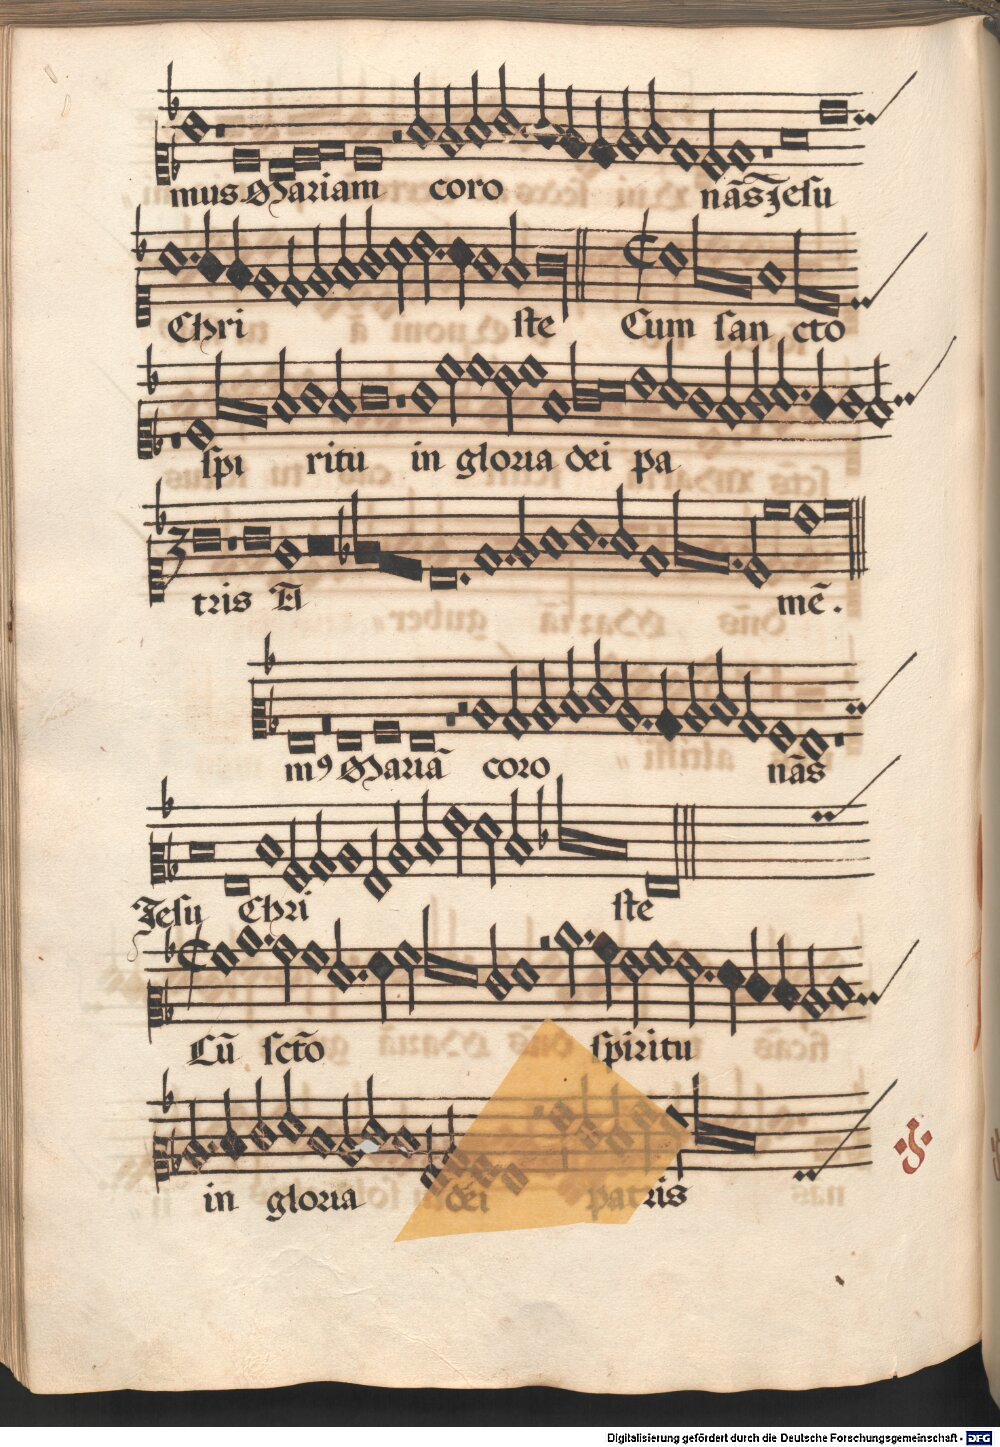 mus Mariam coro nãs Jesu
Chri ste Cum san cto
spi ritu in gloria dei pa
tris A mẽ.
mꝰ Mariã coro nãs
Jesu Chri ste
Cũ sctõ spiritu
in gloria dei patris
Digitalisierung gefördert durch die Deutsche Forschungsgemeinschaft - DFG